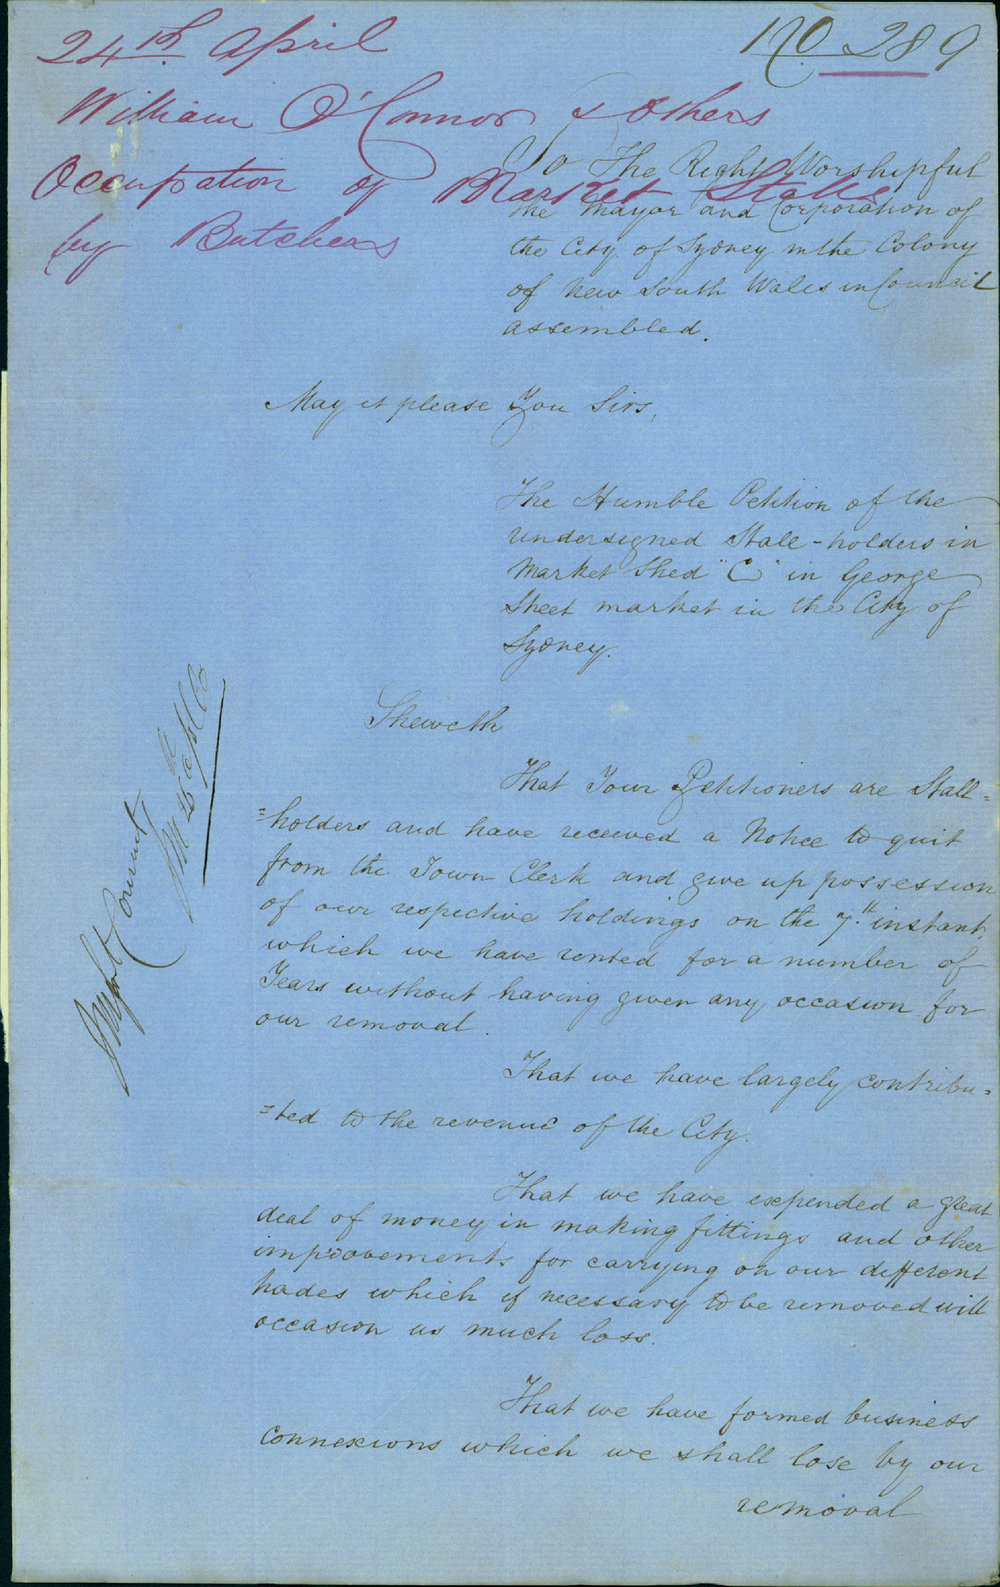 24th April
No 289
William O'Connor & others
Occupation of Market Stalls
by Butchers
To The Right Worshipful
the Mayor and Corporation of
the City of Sydney in the Colony
of New South Wales in Council
assembled.
May it please You Sirs,
The Humble Petition of the
undersigned Stall-holders in
Market Shed "C" in George
Street market in the City of
Sydney.
Sheweth
That Your Petitioners are Stall=
=holders and have received a Notice to quit
from the Town Clerk and give up possession
of our respective holdings on the 7th instant.
which we have rented for a number of
Years without having given any occasion for
our removal.
That we have largely contribu=
=ted to the revenue of the City.
That we have expended a great
deal of money in making fittings and other
improvements for carrying on our different
trades which if necessary to be removed will
occasion us much loss.
That we have formed business
connexions which we shall lose by our
removal